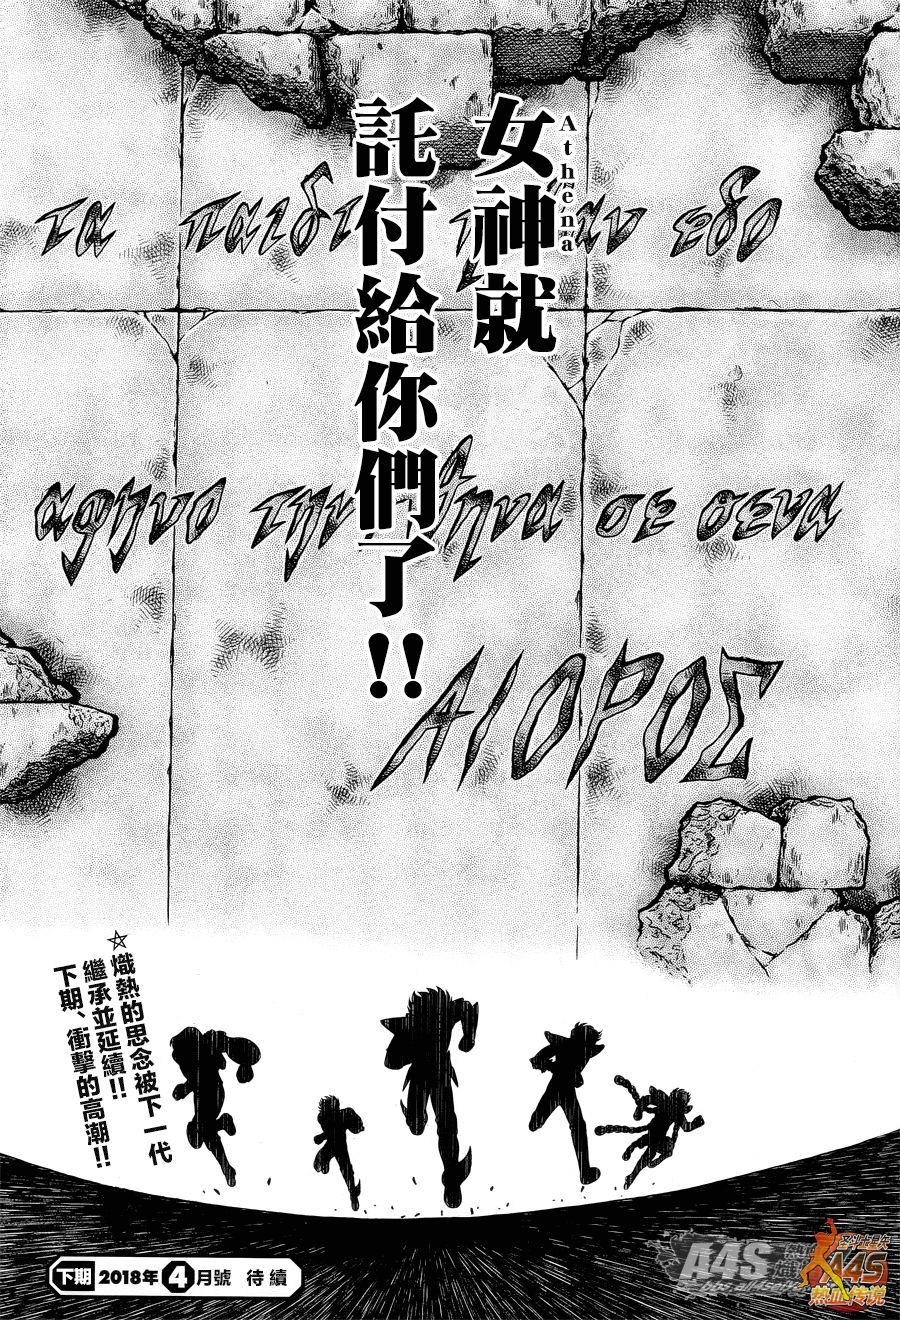 女神就
Athena
託付給你們了!!
τα παιδι
εδο
αφηνο την
ηνα σε σενα
ΑΙΟΡΟΣ
☆熾熱的思念被下一代
繼承並延續!!
下期、衝擊的高潮!!
下期 2018年4月號 待續
A4S
圣斗士星矢
A4S
热血传说